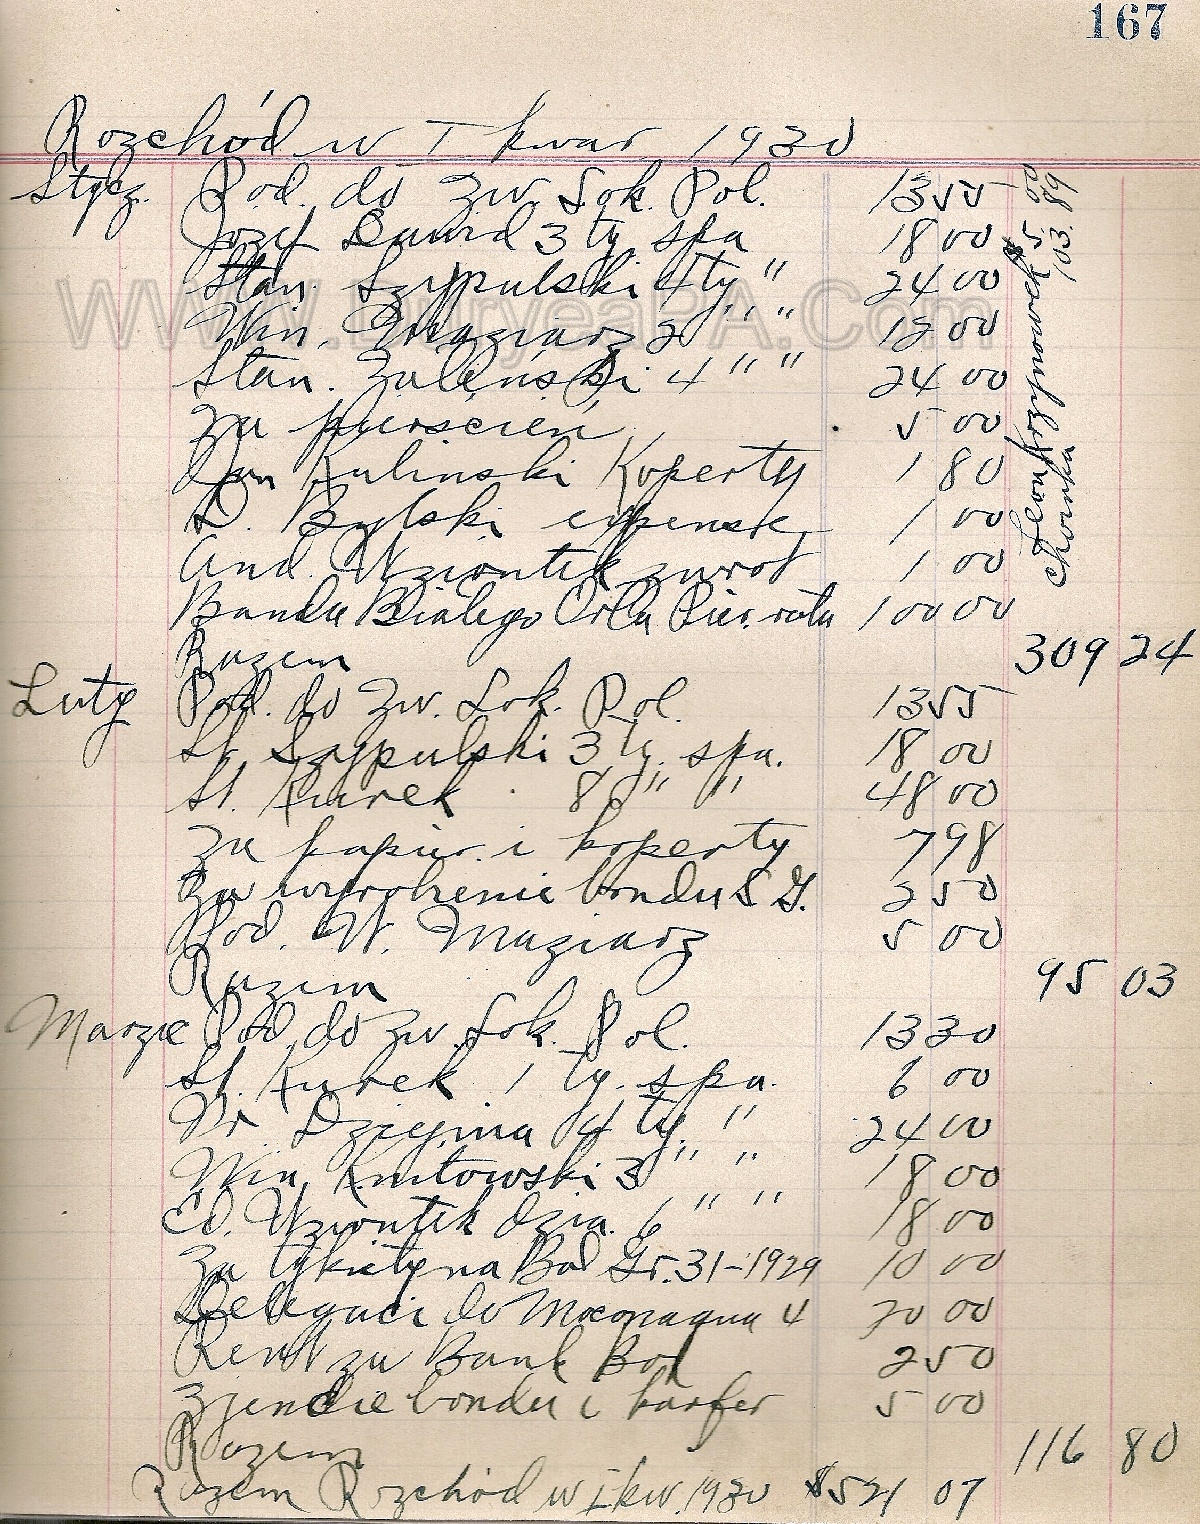 167
Rozchód w I kwar 1930
Stycz. Pod. do Zw. Sok. Pol. 13 55
Józef 3 ty. spa 18 00
Stan. Szypulski 4 ty " 24 00
Win. Maziarz 2 " " 12 00
Stan. Zaliński 4 " " 24 00
Za pierscień 5 00
Jan Kulinski Koperty 1 80
Bylski 1 00
And. Wziontek zwrot 1 00
Banda Bialego Orla Pier. rata 100 00
Razem 309 24
Leon 5 00
103.89
Luty Pod. do Zw. Sok. Pol. 13 55
St. Szypulski 3 ty. spa. 18 00
St. Kurek 8 " " 48 00
Za papier. i koperty 7 98
Za wyrobienie bondu S G. 2 50
Pod. W. Maziarz 5 00
Razem 95 03
Marzec Pod. do Zw. Sok. Pol. 13 30
St. Kurek 1 ty. spa. 6 00
Fr. Dziejma 4 ty. " 24 00
Win. Knitowski 3 " " 18 00
Ed. Wziontek dzia. 6 " " 18 00
Za tykiety na Bal Gr. 31-1929 10 00
Delegaci do Moconaqua 4 20 00
Rent za Bank Box 2 50
bondu i 5 00
Razem 116 80
Razem Rozchód w I kw. 1930 $521 07
www.DuryeaPA.Com